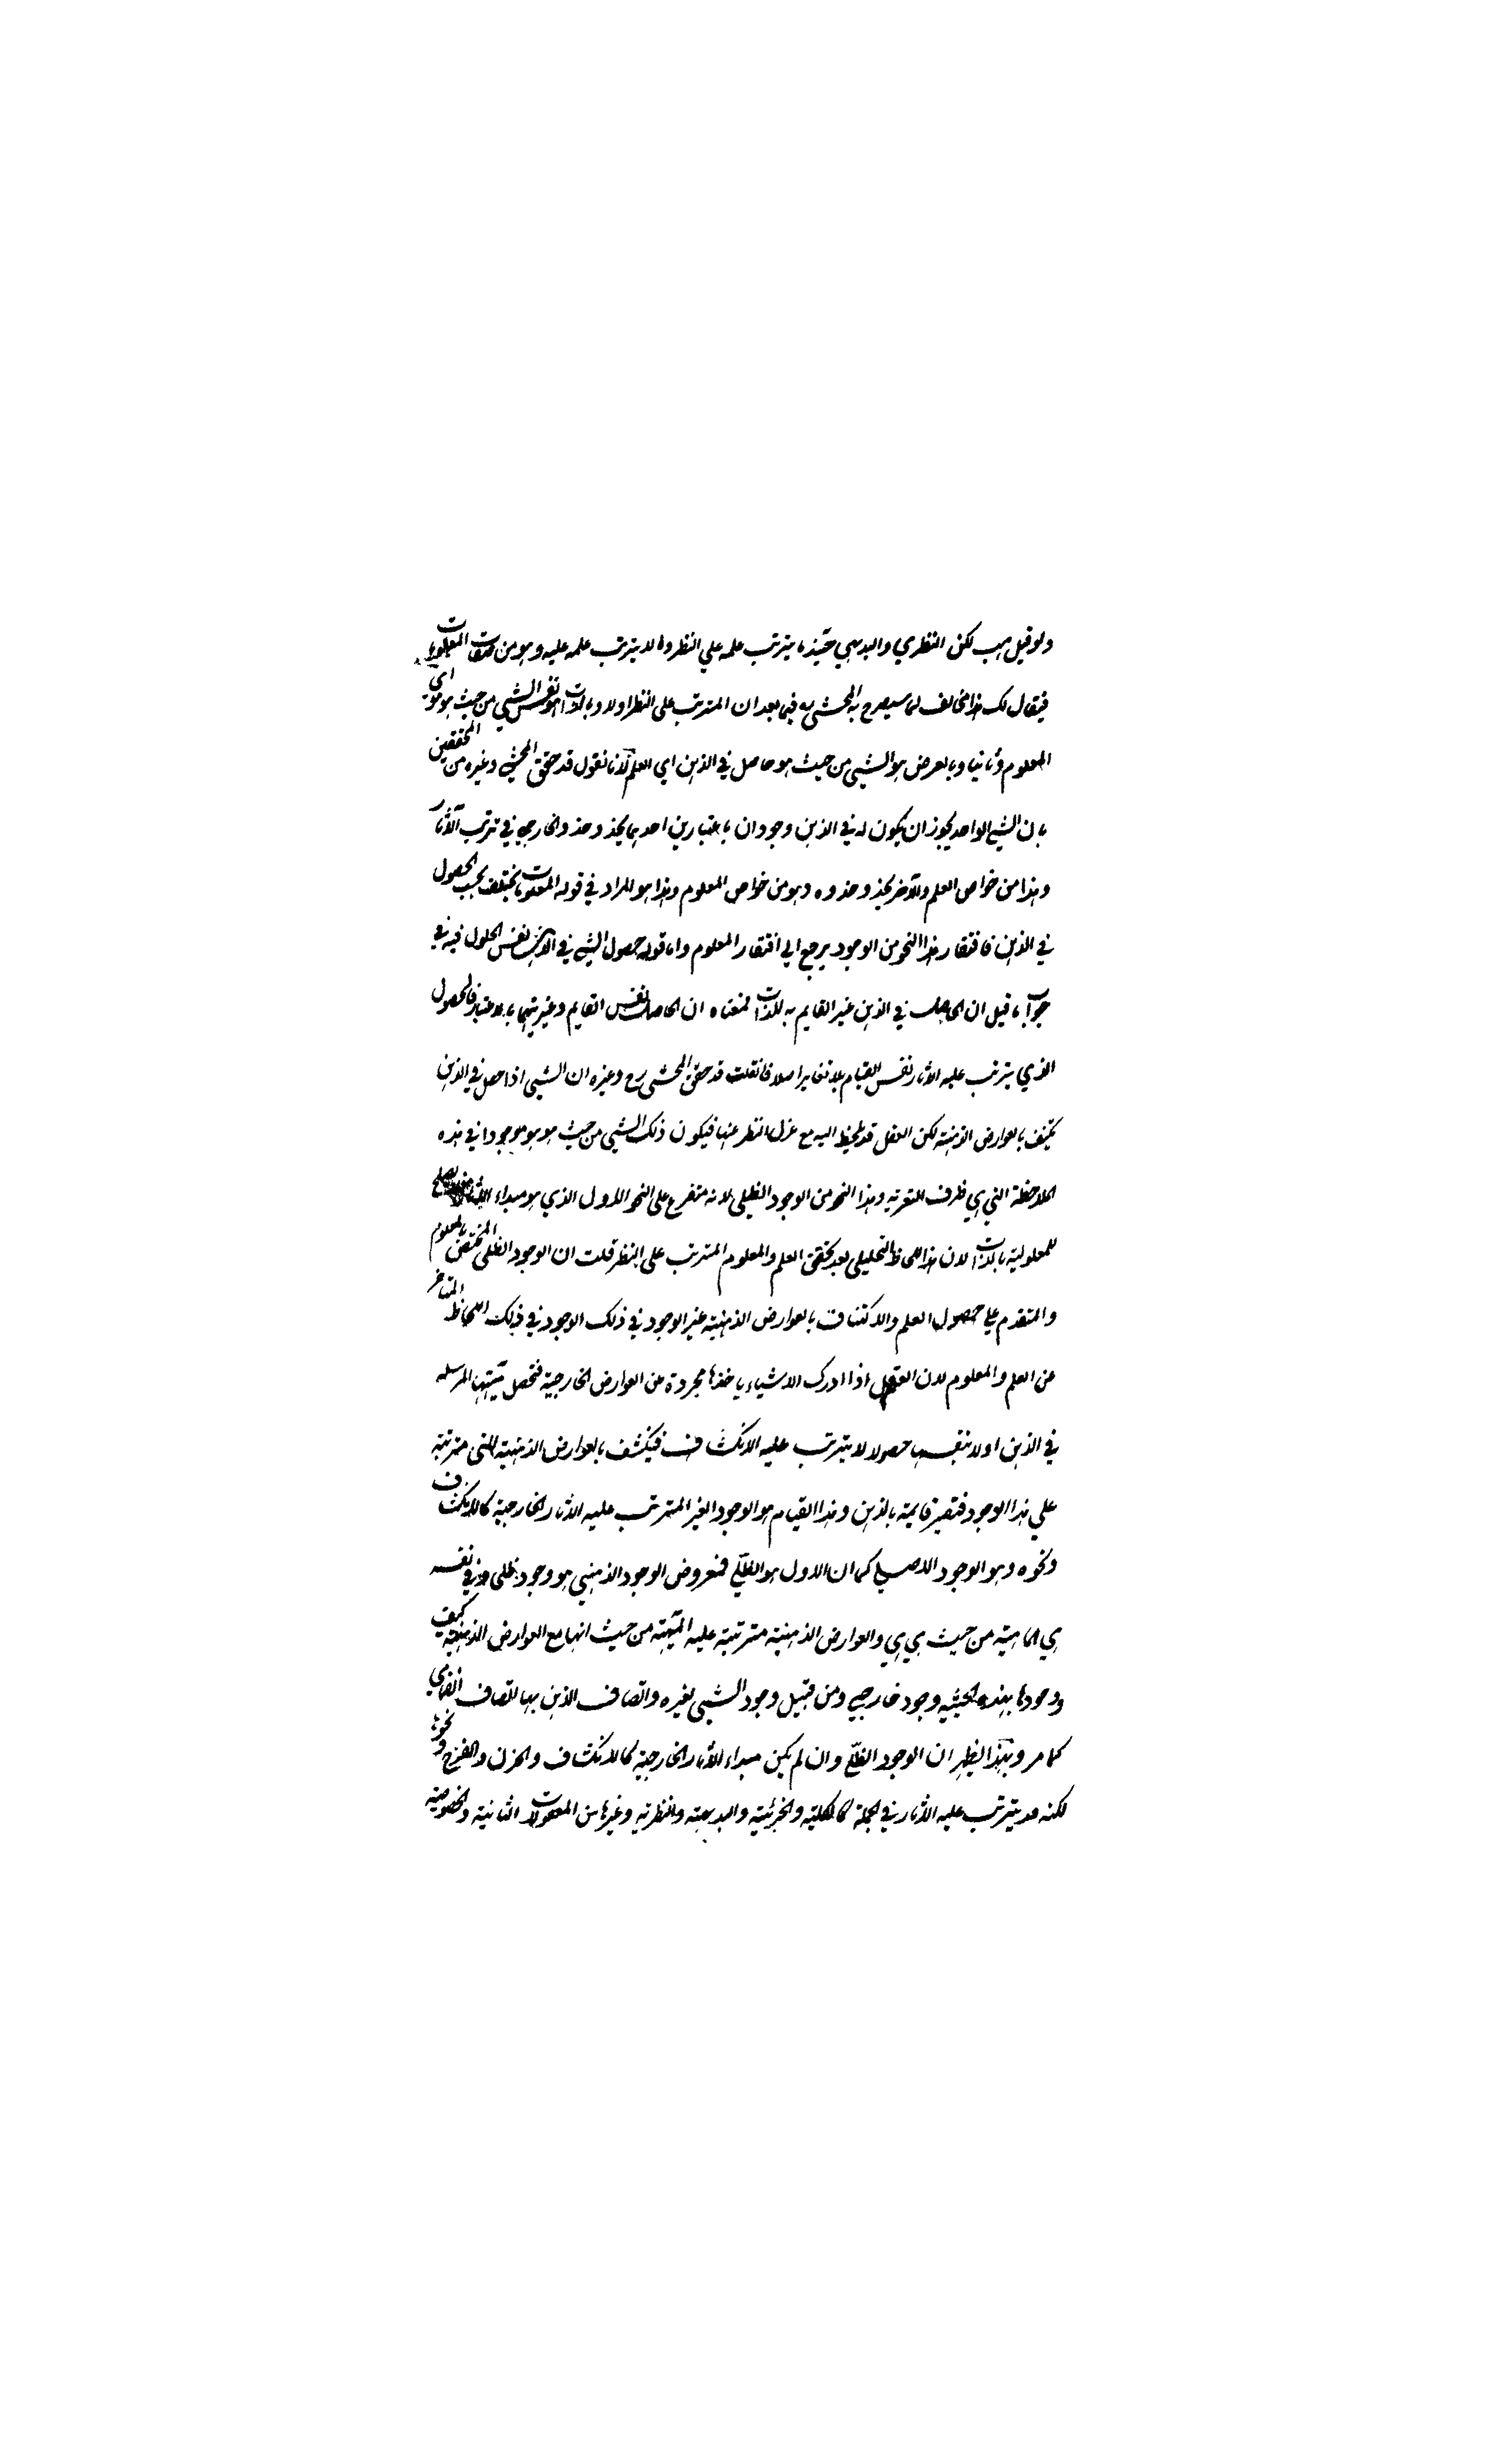 ولو قيل هب لكن النظري والبديهي حينئذ ما يترتب علمه علي النظر وما لا يترتب علمه عليه وهو من صفات المعلومات
فيقال لك هذا مخالف لما سيصرح به المحشي فيما بعد ان المترتب على النظر اولا وبالذات هو نفس الشيي من حيث هو هو اي
المعلوم وثانيا وبالعرض هو الشيي من حيث هو حاصل في الذهن اي العلم لانا نقول قد حقق المحشي وغيره من المحققين
بان الشيي الواحد يجوز ان يكون له في الذهن وجودان باعتبارين احدهما يحذو حذو الخارجي في ترتب الآثار
وهذا من خواص العلم والآخر لا يحذو حذوه وهو من خواص المعلوم وهذا هو المراد في قوله المعلومات تختلف بحسب الحصول
في الذهن فافتقار هذا النحو من الوجود يرجع الي افتقار المعلوم واما قوله حصول الشيي في الذهن نفس الحلول فيه في
جواب ما قيل ان الحاصل في الذهن غير القايم به بالذات فمعناه ان الحاصل نفس القايم وغيريتهما بالاعتبار فالحصول
الذي يترتب عليه الآثار نفس القيام بلا تغاير اصلا فان قلت قد حقق المحشي رح وغيره ان الشيي اذا حصل في الذهن
يكتنف بالعوارض الذهنية لكن العقل قد يلحظ اليه مع عزل النظر عنها فيكون ذلك الشيي من حيث هو هو موجودا في هذه
الملاحظة التي هي ظرف للتعرية وهذا النحو من الوجود الظلي لانه متفرع على النحو الاول الذي هو مبداء الآثار فلا يصلح
للمعلولية بالذات لان هذا اللحاظ التحليلي بعد تحقق العلم والمعلوم المترتب على النظر قلت ان الوجود الظلي المختص بالمعلوم
والمتقدم علي حصول العلم والاكتناف بالعوارض الذهنية غير الوجود في ذلك الوجود في ذلك اللحاظ المتاخر
عن العلم والمعلوم لان العقل اذا ادرك الاشياء ياخذها مجردة عن العوارض الخارجية فتحصل مهيتها المرسله
في الذهن اولا بنفسها حصولا لا يترتب عليه الانكشاف فيكتنف بالعوارض الذهنية التي مترتبة
علي هذا الوجود فتصير قايمة بالذهن وهذا القيام هو الوجود الغير المترتب عليه الآثار الخارجية كالانكشاف
ونحوه وهو الوجود الاصلي كما ان الاول هو الظلي فمعروض الوجود الذهني هو وجود ظلي وفي نفسه
هي الماهية من حيث هي هي والعوارض الذهنية مترتبة عليه المهية من حيث انها مع العوارض الذهنية كيف
ووجودها بهذه الحيثيه وجود خارجي ومن قبيل وجود الشيي لغيره واتصاف الذهن بها اتصاف انضمامي
كما مر وبهذا يظهر ان الوجود الظلي وان لم يكن مبداء للآثار الخارجية كالانكشاف والحزن والفرح ونحوها
لكنه قد يترتب عليه الآثار في الجملة كالكلية والجزئية والبديهية والنظرية وغيرها من المعقولات الثانية والخصوصية